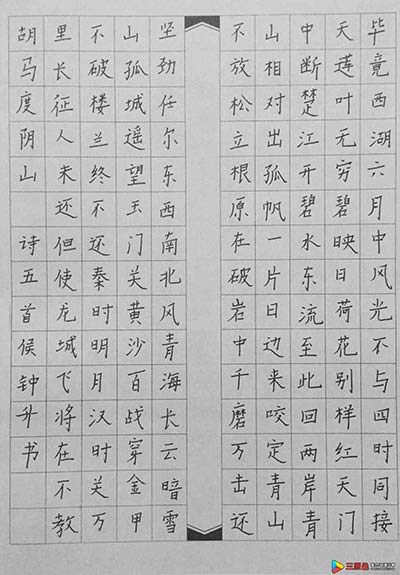 毕竟西湖六月中风光不与四时同接
天莲叶无穷碧映日荷花别样红天门
中断楚江开碧水东流至此回两岸青
山相对出孤帆一片日边来咬定青山
不放松立根原在破岩中千磨万击还
坚劲任尔东西南北风青海长云暗雪
山孤城遥望玉门关黄沙百战穿金甲
不破楼兰终不还秦时明月汉时关万
里长征人未还但使龙城飞将在不教
胡马度阴山 诗五首侯钟升书